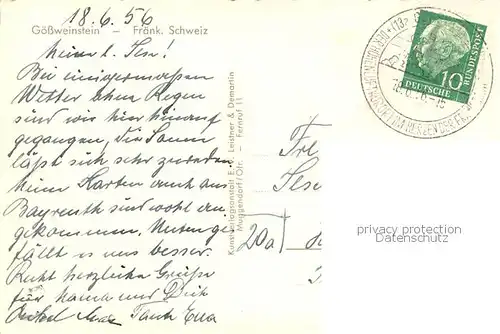 18.6.56
Gößweinstein – Fränk. Schweiz
Mein l. Ilse!
Bei einigermaßen
Wetter ohne Regen
sind wir hier hinauf
gegangen, die Sonne
läßt sich sehr
Karten auch aus
Bayreuth sind wohl an
gekommen. Unten ge
fällt es uns besser.
Recht herzliche Grüße
für Mama und Dich
Onkel Max Tante Erna
Kunstverlagsanstalt E. u. Leistner & Demartin
Muggendorf/Ofr. – Fernruf 11
DEUTSCHE BUNDESPOST
10
(13a
IM HERZEN DER
Frl
20a
privacy protection
Datenschutz